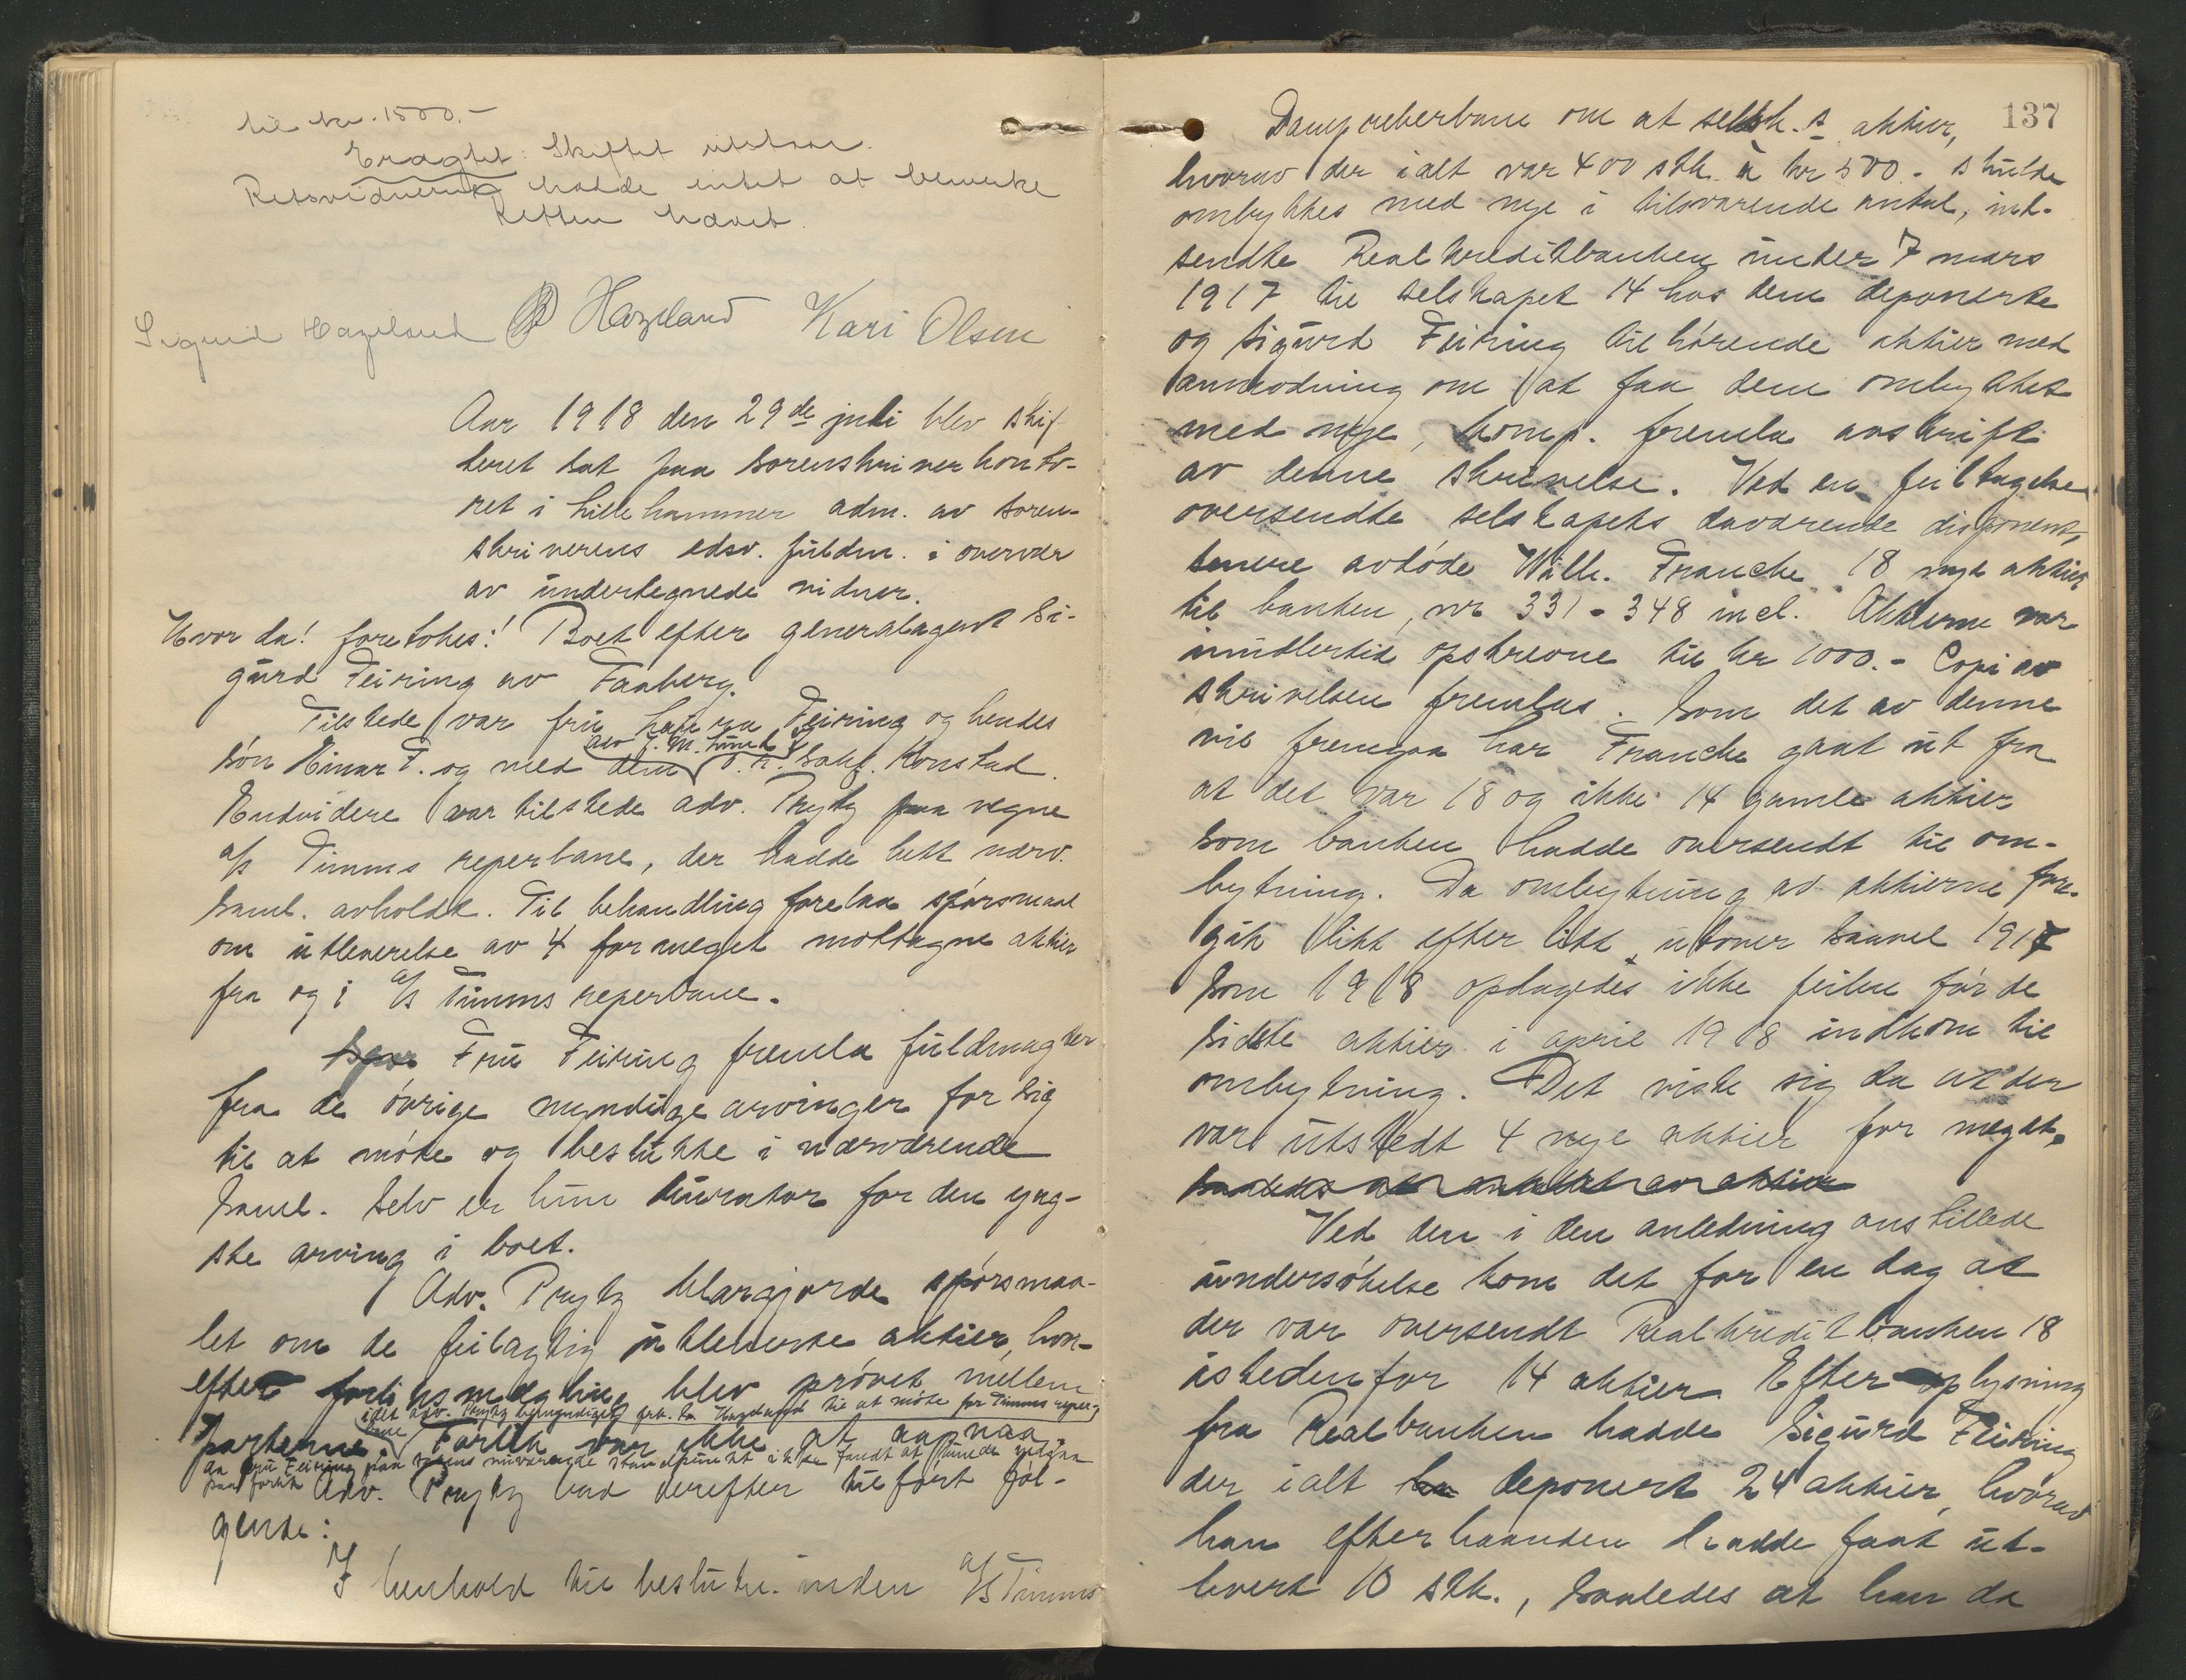 til kr. 1500.-
Eragtet: Skiftet utstaar.
Retsvidnerne hadde intet at bemerke
Retten hævet.
Sigurd Hazeland Hazeland Kari Olsen
Aar 1918 den 29de juli blev skif-
teret sat paa sorenskriverkonto-
ret i Lillehammer adm. av soren-
skriverens edsv. fuldm. i overvær
av undertegnede vidner.
Hvor da! foretokes: Boet efter generalagent Si-
gurd Feiring av Faaberg.
Tilstede var fru Feiring og hendes
søn Einar F. og med dem o.r. sakf. Konstad.
adv J. M. Lund
Endvidere var tilstede adv. Prytz paa vegne
a/s Timms reperbane, der hadde bett nærv.
saml. avholdt. Til behandling forelaa spørsmaal
om utleverelse av 4 formeget mottagne aktier
fra og i a/s Timms reperbane.
Fru Feiring fremla fuldmagter
fra de øvrige myndige arvinger for sig
til at møte og beslutte i nærværende
saml. Selv er hun kurator for den yng-
ste arving i boet.
Adv. Prytz klargjorde spørsmaa-
let om de feilagtig utleverte aktier, hvor-
efter forliksmægling blev prøvet mellem
idet adv. Prytz bemyndiget frk. Hazeland til at møte for Timms reper-
bane
parterne. Forlik var ikke at opnaa,
da fru Feiring paa sakens nuværende standpunkt ikke fandt at kunde indgaa
paa forlik Adv. Prytz bad derefter tilført føl-
gende:
I henhold til beslutn. inden a/s Timms
137
Dampreberbane om at selsk.s aktier,
hvorav der ialt var 400 stk. à kr 500.- skulde
ombyttes med nye i tilsvarende antal, ind-
sendte Realkreditbanken under 7 mars
1917 til selskapet 14 hos dem deponerte
og Sigurd Feiring tilhørende aktier med
anmodning om at faa dem ombyttet
med nye, komp. fremla avskrift
av denne skrivelse. Ved en feiltagelse
oversendte selskapets daværende disponent,
senere avdøde Wilh. Francke 18 nye aktier
til banken, nr 331-348 incl. Aktierne var
imidlertid opskrevne til kr 1000.- Copi av
skrivelsen fremlas. Som det av denne
vil fremgaa har Francke gaat ut fra
at det var 18 og ikke 14 gamle aktier
som banken hadde oversendt til om-
bytning. Da ombytning av aktierne fore-
gik litt efter litt utover saavel 1917
som 1918 opdagedes ikke feilen før de
sidste aktier i april 1918 indkom til
ombytning. Det viste sig da at der
var utstedt 4 nye aktier for meget.
Ved den i den anledning anstillede
undersøkelse kom det for en dag at
der var oversendt Realkreditbanken 18
istedenfor 14 aktier. Efter oplysning
fra Realbanken hadde Sigurd Feiring
der ialt deponert 24 aktier, hvorav
han efterhaanden hadde faat ut-
levert 10 stk., saaledes at han da